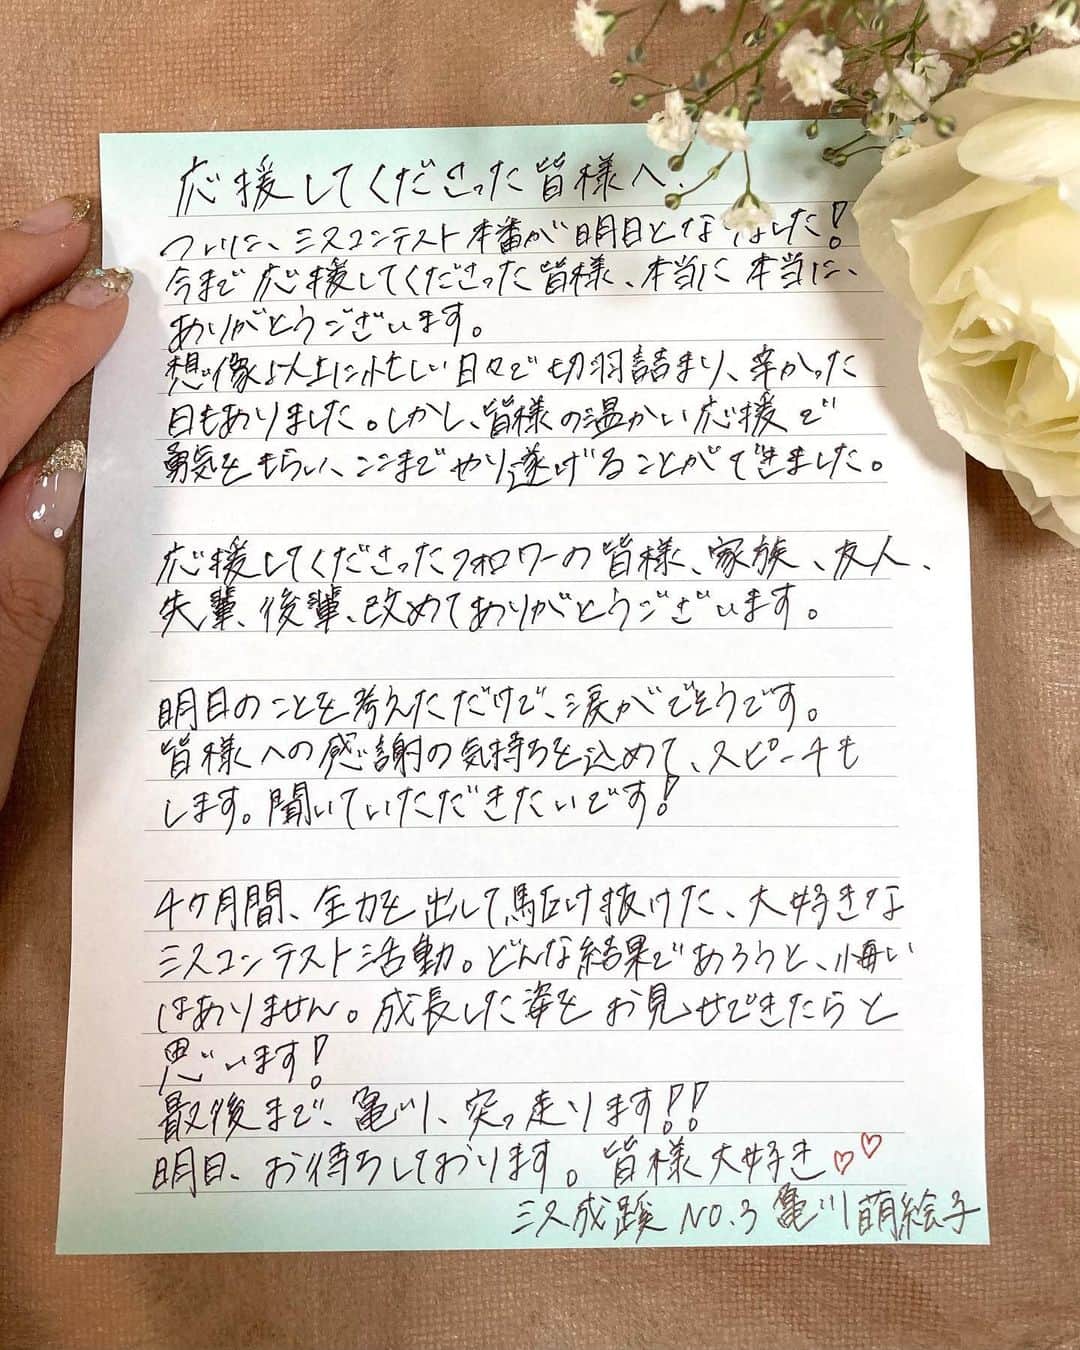 応援してくださった皆様へ、
ついに、ミスコンテスト本番が明日となりました!
今まで応援してくださった皆様、本当に本当に、
ありがとうございます。
想像以上に忙しい日々で切羽詰まり、辛かった
日もありました。しかし、皆様の温かい応援で
勇気をもらい、ここまでやり遂げることができました。
応援してくださったフォロワーの皆様、家族、友人、
先輩、後輩、改めてありがとうございます。
明日のことを考えただけで、涙がでそうです。
皆様への感謝の気持ちを込めて、スピーチも
します。聞いていただきたいです!
4ヶ月間、全力を出して駆け抜けた、大好きな
ミスコンテスト活動。どんな結果であろうと、悔い
はありません。成長した姿をお見せできたらと
思います!
最後まで、亀川、突っ走ります!!
明日、お待ちしております。皆様大好き♡♡
ミス成蹊 NO.3 亀川萌絵子